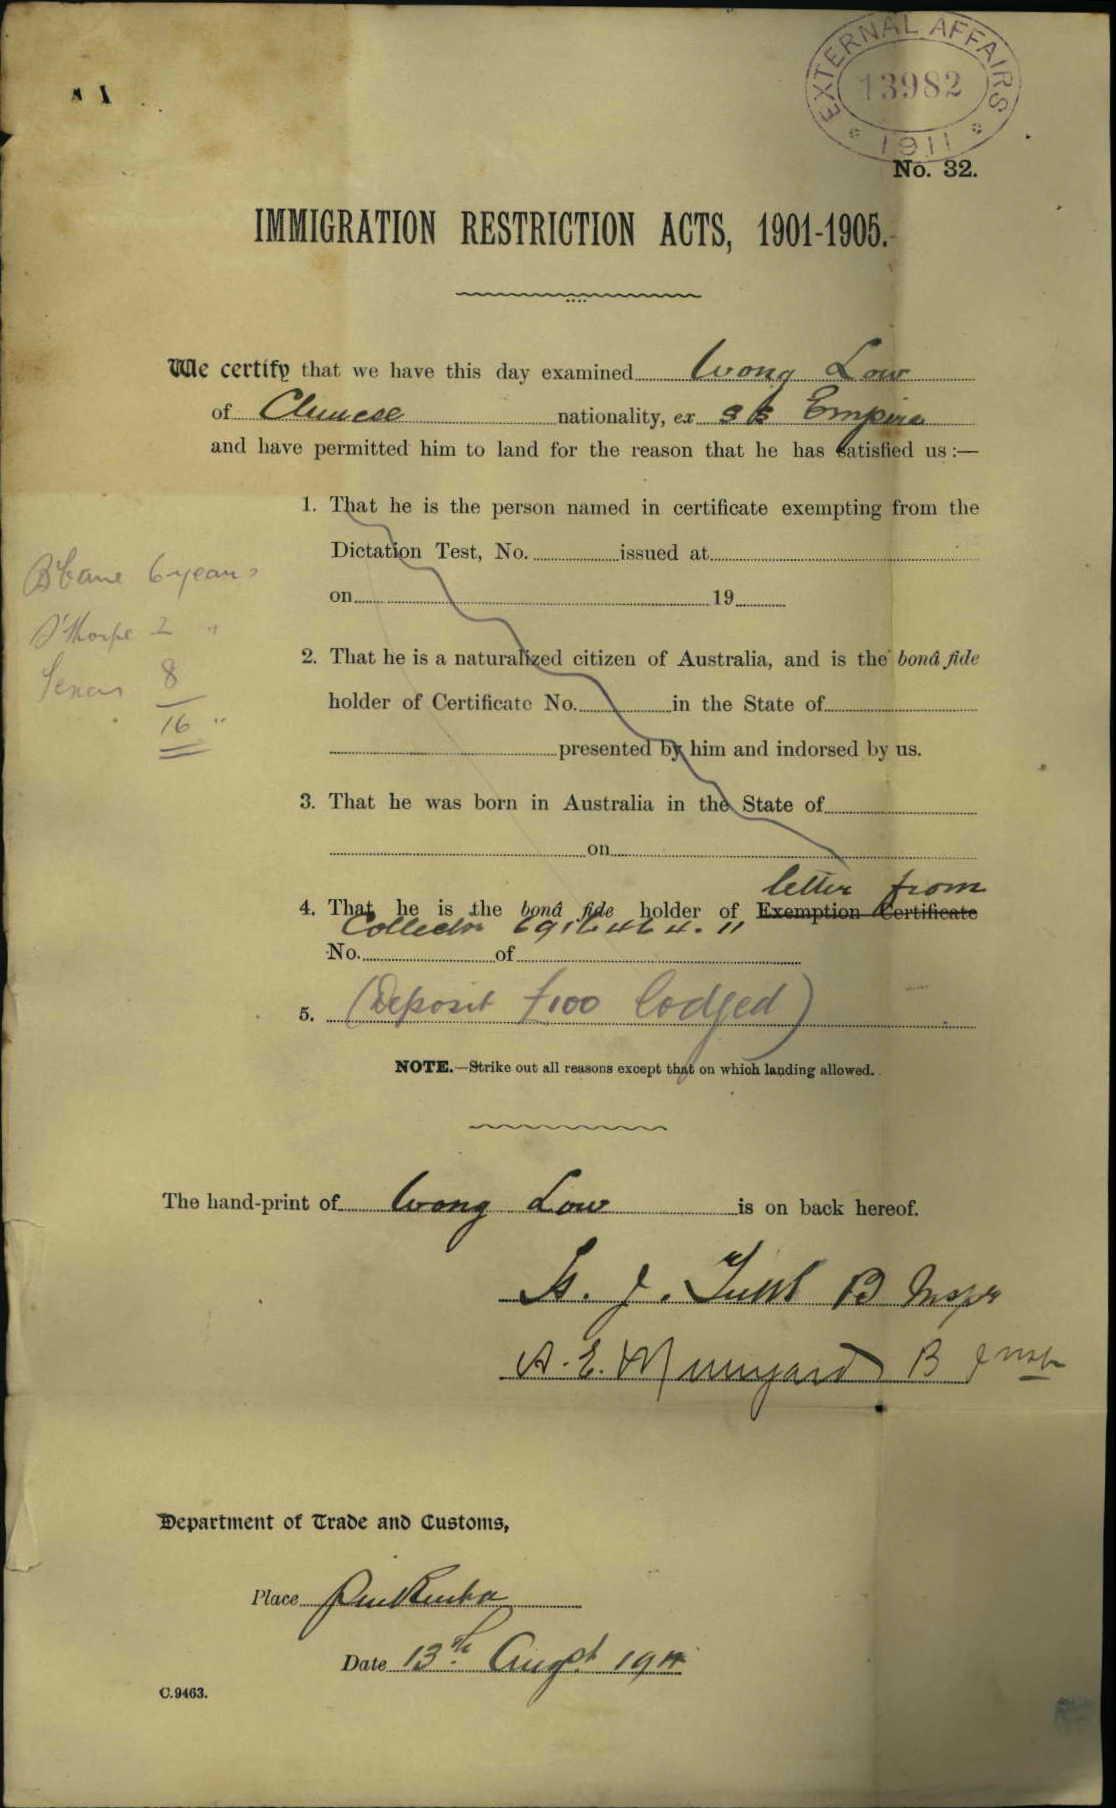 EXTERNAL AFFAIRS
13982
1911
No. 32.
IMMIGRATION RESTRICTION ACTS, 1901-1905.
We certify that we have this day examined Wong Low
of Chinese nationality, ex ss Empire
and have permitted him to land for the reason that he has satisfied us :—
1. That he is the person named in certificate exempting from the
Dictation Test, No. issued at
on 19
B'bane 6 years
S'thorpe 2 "
8
16 "
2. That he is a naturalized citizen of Australia, and is the bonâ fide
holder of Certificate No. in the State of
presented by him and indorsed by us.
3. That he was born in Australia in the State of
on
letter from
4. That he is the bonâ fide holder of Exemption Certificate
Collector
No. of
5. (Deposit £100 lodged)
NOTE.—Strike out all reasons except that on which landing allowed.
The hand-print of Wong Low is on back hereof.
J. B Inspr
A. E. Munyard B Inspr
Department of Trade and Customs,
Place Pinkenba
Date 13th Augst 1911
C.9463.